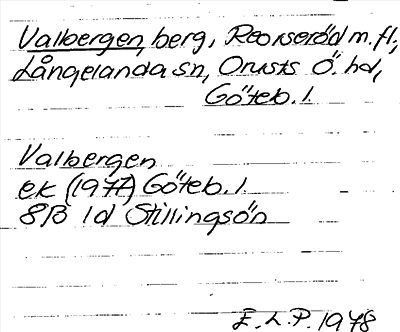 Valbergen, berg, Reorseröd m.fl.,
Långelanda sn, Orusts Ö. hd,
Göteb. l.
Valbergen
ek (1977) Göteb. l.
8B 1d Stillingsön
E.L.P. 1978